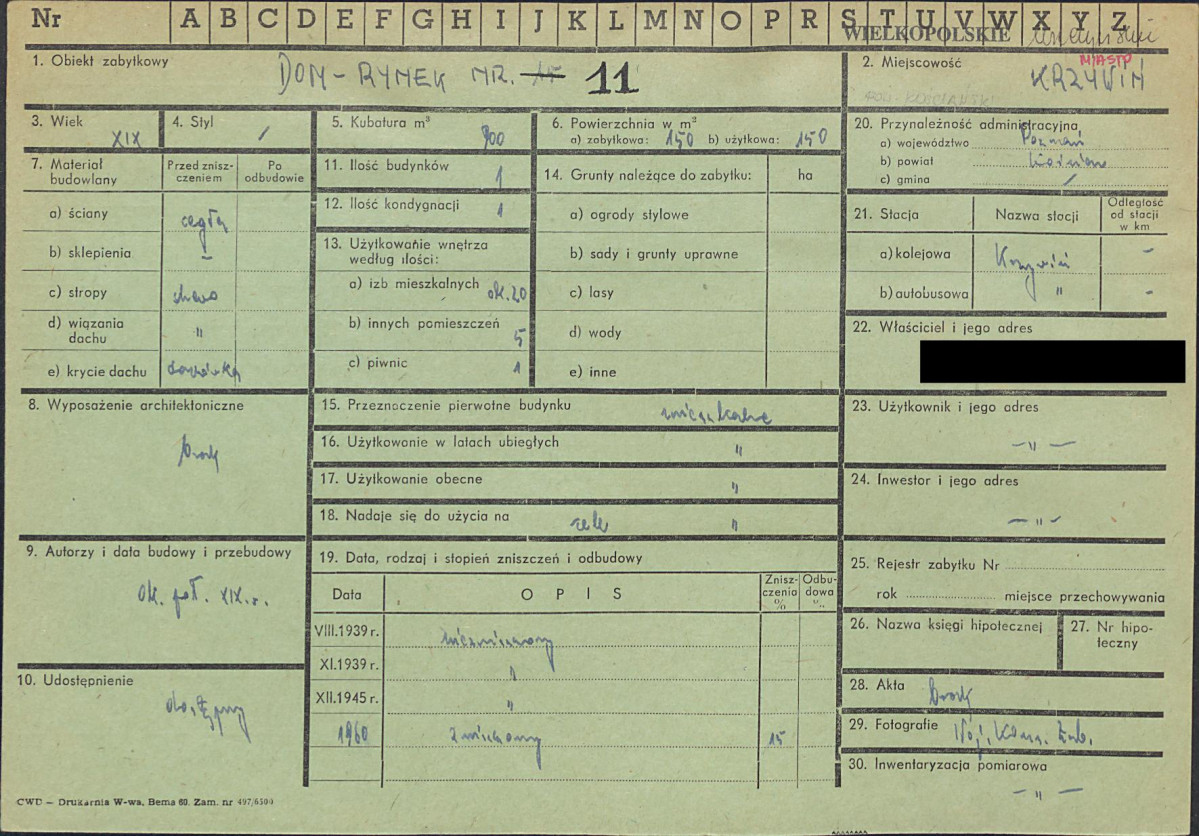 Nr A B C D E F G H I J K L M N O P R S T U V W X Y Z
WIELKOPOLSKIE
1. Obiekt zabytkowy DOM - RYNEK NR. 15 11
2. Miejscowość MIASTO
KRZYWIŃ
POW. KOŚCIAŃSKI
3. Wiek XIX
4. Styl /
5. Kubatura m³ 900
6. Powierzchnia w m²
a) zabytkowa: 150 b) użytkowa: 150
20. Przynależność administracyjna
a) województwo Poznań
b) powiat Kościan
c) gmina /
7. Materiał budowlany
Przed zniszczeniem
Po odbudowie
a) ściany cegła
b) sklepienia –
c) stropy drewno
d) wiązania dachu "
e) krycie dachu dachówka
11. Ilość budynków 1
12. Ilość kondygnacji 1
13. Użytkowanie wnętrza według ilości:
a) izb mieszkalnych ok. 20
b) innych pomieszczeń 5
c) piwnic 1
14. Grunty należące do zabytku: ha
a) ogrody stylowe
b) sady i grunty uprawne
c) lasy
d) wody
e) inne
21. Stacja
Nazwa stacji
Odległość od stacji w km
a) kolejowa Krzywiń –
b) autobusowa " –
22. Właściciel i jego adres
8. Wyposażenie architektoniczne
brak
15. Przeznaczenie pierwotne budynku mieszkalne
16. Użytkowanie w latach ubiegłych "
17. Użytkowanie obecne "
18. Nadaje się do użycia na cele "
23. Użytkownik i jego adres
– " –
24. Inwestor i jego adres
– " –
9. Autorzy i data budowy i przebudowy
ok. poł. XIX w.
19. Data, rodzaj i stopień zniszczeń i odbudowy
Data
OPIS
Zniszczenia %
Odbudowa %
VIII.1939 r. niezniszczony
XI.1939 r. "
XII.1945 r. "
1960 zniszczony 15
25. Rejestr zabytku Nr
rok miejsce przechowywania
26. Nazwa księgi hipotecznej
27. Nr hipoteczny
10. Udostępnienie
dostępny
28. Akta brak
29. Fotografie Woj. Kons. Zab.
30. Inwentaryzacja pomiarowa
– " –
CWD — Drukarnia W-wa, Bema 60. Zam. nr 497/6500